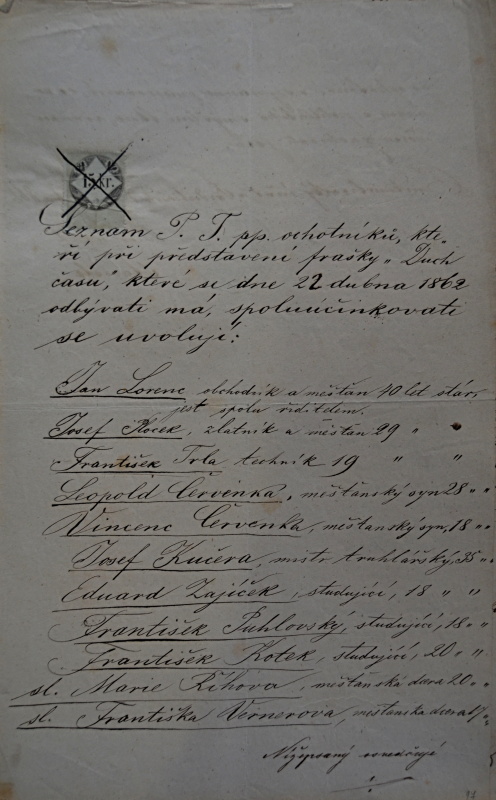 15 kr.
Seznam P. T. pp. ochotníků, kte-
ří při představení frašky „Duch
času", které se dne 22 dubna 1862
odbývati má, spoluúčinkovati
se uvolují:
Jan Lorenc obchodník a měšťan 40 let stár,
jest spolu ředitelem.
Josef Kocek, zlatník a měšťan 29 "
František Trla technik 19 " "
Leopold Červenka, měšťanský syn 28 " "
Vincenc Červenka, měšťanský syn, 18 " "
Josef Kučera, mistr truhlářský, 35 " "
Eduard Zajíček, studující, 18 " "
František Puhlovský, studující, 18 " "
František Kotek, studující, 20 " "
sl. Marie Říhova, měšťanská dcera 20 " "
sl. Františka Vernerova, měšťanska dcera 17 "
Nížepsaný